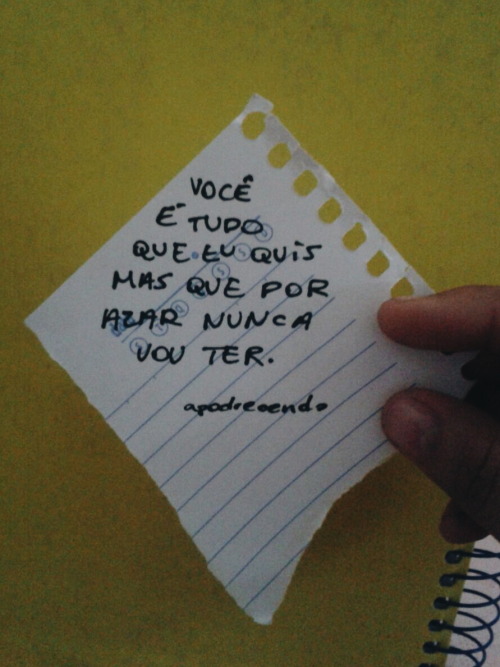 VOCÊ
É TUDO
QUE EU QUIS
MAS QUE POR
AZAR NUNCA
VOU TER.
apodrecendo